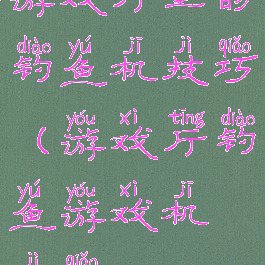 游戏厅里的
diào yú jī jì qiǎo
钓鱼机技巧
yóu xì tīng diào
（游戏厅钓
yú yóu xì jī
鱼游戏机
jì qiǎo